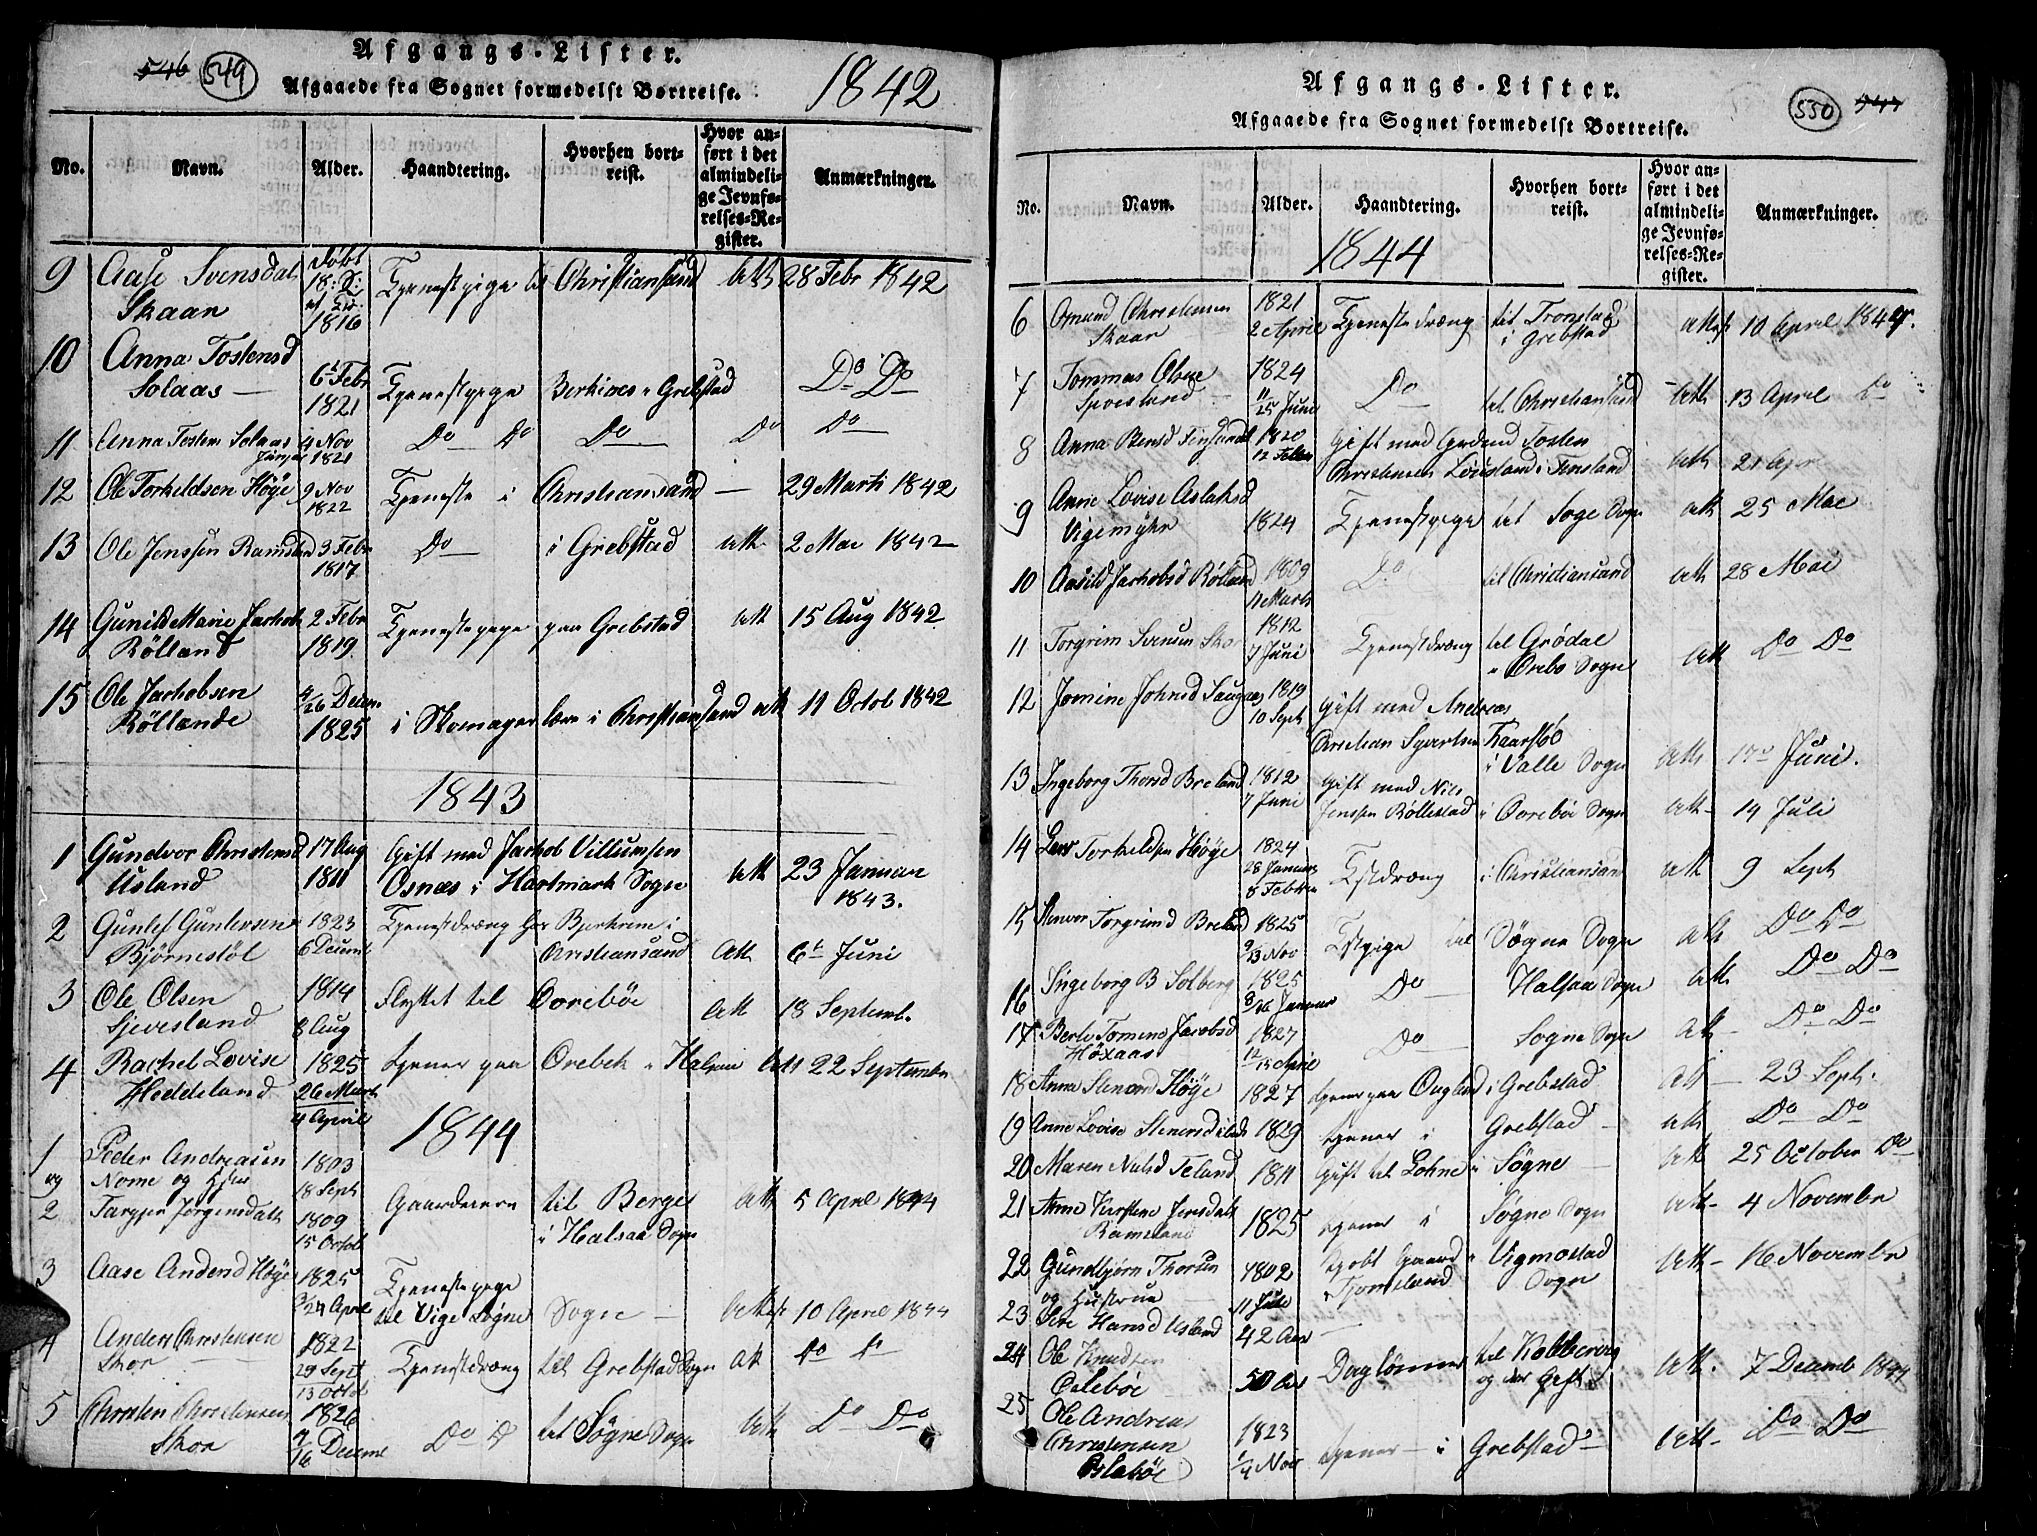 546 549
Afgangs-Lister.
Afgaaede fra Sognet formedelst Bortreise.
1842
No. Navn. Alder. Haandtering. Hvorhen bortreist. Hvor anført i det almindelige Jevnførelses-Register. Anmærkninger.
9 Aase Svensdat Skaan Døbt 18 1816 Tjenestpige til Christiansand Att 28 Febr 1842
10 Anna Tostensd Solaas 6t Febr 1821 Tjenestpige Grebstad Do Do
11 Anna Tostens Solaas 4 Nov 1821 Do Do Do Do Do
12 Ole Torkeldsen Höye 9 Nov 1822 Tjeneste i Christiansand — 29 Marti 1842
13 Ole Jenssen 3 Febr 1817 Do i Grebstad att 2 Mai 1842
14 Gunild Marie Jachobs Rölland 2 Febr 1819 Tjenestepige paa Grebstad att 15 Aug 1842
15 Ole Jachobsen Röllande 4/26 Decem 1825 i Skomager lære i Christiansand att 11 Octob 1842
1843
1 Gundvor Christensd Usland 17 Aug 1811 Gift med Jachob Villumsen Osnæs i Hartmark Sogn att 23 Januar 1843.
2 Gunlef Gunlevsen Bjørnestöl 1823 6 Decemb Tjenestdræng hos Bjerkrem i Christiansand Att 6t Juni
3 Ole Olsen Sjevesland 1814 8 Aug Flyttet til Oovreböe Att 18 Septemb.
4 Rachel Lovise Heddeland 1825 26 Marti 4 April tjener paa Orebek i Halsaa Att 22 Septembr
1844
1 og 2 Peder Andreasen Nome og Hustru Jörgensdatt 1803 18 Sept 1809 15 Octob Gaardeiere til Berge i Halsaa Sogn att 5 April 1844
3 Aase Andersd Höye 1825 2/24 April Tjenestepige til Vige Søgne Sogn — Attest 10 April 1844
4 Anders Christensen Skor 1822 29 Sept 13 Octob Tjenestdræng til Grebstad Sogn att do do
5 Christen Christensen Skor 1826 16 Decemb Do D til Søgne Sogn Att Do Do
550 547
Afgangs-Lister.
Afgaaede fra Sognet formedelst Bortreise.
No. Navn. Alder. Haandtering. Hvorhen bortreist. Hvor anført i det almindelige Jevnførelses-Register. Anmærkninger.
1844
6 Omund Christensen Skaar 1821 2 April Tjeneste dræng til Tronstad i Grebstad attest 10 April 1844.
7 Tommas Olsen 1824 11 25 Juni Do til Christiansand Att 13 April Do
8 Anna 1820 12 Febr Gift med Tosten Christensen i Finsland att 21 Apr
9 Anne Lovise Aslaksd Vigemyhr 1824 Tjenestpige til Sogn att 25 Mai
10 Aasild Jachobsd Rölland 1809 11 Marts Do til Christiansand att 28 Mai
11 Torgrim Svensen 1812 7 Juni Tjenestdræng til Grödal i Sogn Att Do Do
12 Jomine Johnsd 1819 10 Sept Gift med Andreas Christian Syvertsen Kaarstöe i Valle Sogn Att 17 Juni.
13 Ingeborg Thorsd Breland 1812 7 Juni Gift med Nils Jenssen Röllestad i Oovreböe Sogn att 14 Juli
14 Lars Torkeldsen Höye 1824 28 Januar 8 Febr Tjstdræng i Christiansand att 9 Sept
15 Torgrimsd Breland 1825 9/13 Nov Tjstpige til Søgne Sogn att Do Do
16 Ingeborg B Solberg 1825 8/26 Januar Do Halsaa Sogn att Do Do
17 Berte Tomine Jacobsd Höxaas 1827 12/15 April Do Sogne Sogn att Do Do
18 Anna Höye 1827 tjener paa i Grebstad att 23 Sept.
19 Anne Lovise 1829 tjener i Grebstad att Do Do
20 Maren Nielsd Teland 1811 Gift til Lohne i Søgne Att 25 October Do
21 Anne Kirstine Jensdatt Ramsland 1825 tjener i Søgne Sogn att 4 Novembr
22 Gundbjørn Thorsen 1802 11 Juli kjöbt Gaard i Vigmostad Sogn Att 16 Novembr
23 og Hustrue Siri Hansd Usland 42 Aar
24 Ole Knudsen 50 Aar Daglönner til og der Gift Att. 7 Decemb 1844
25 Ole Andreas Christensen 1823 4 Nov tjener i Grebstad — Att Do Do